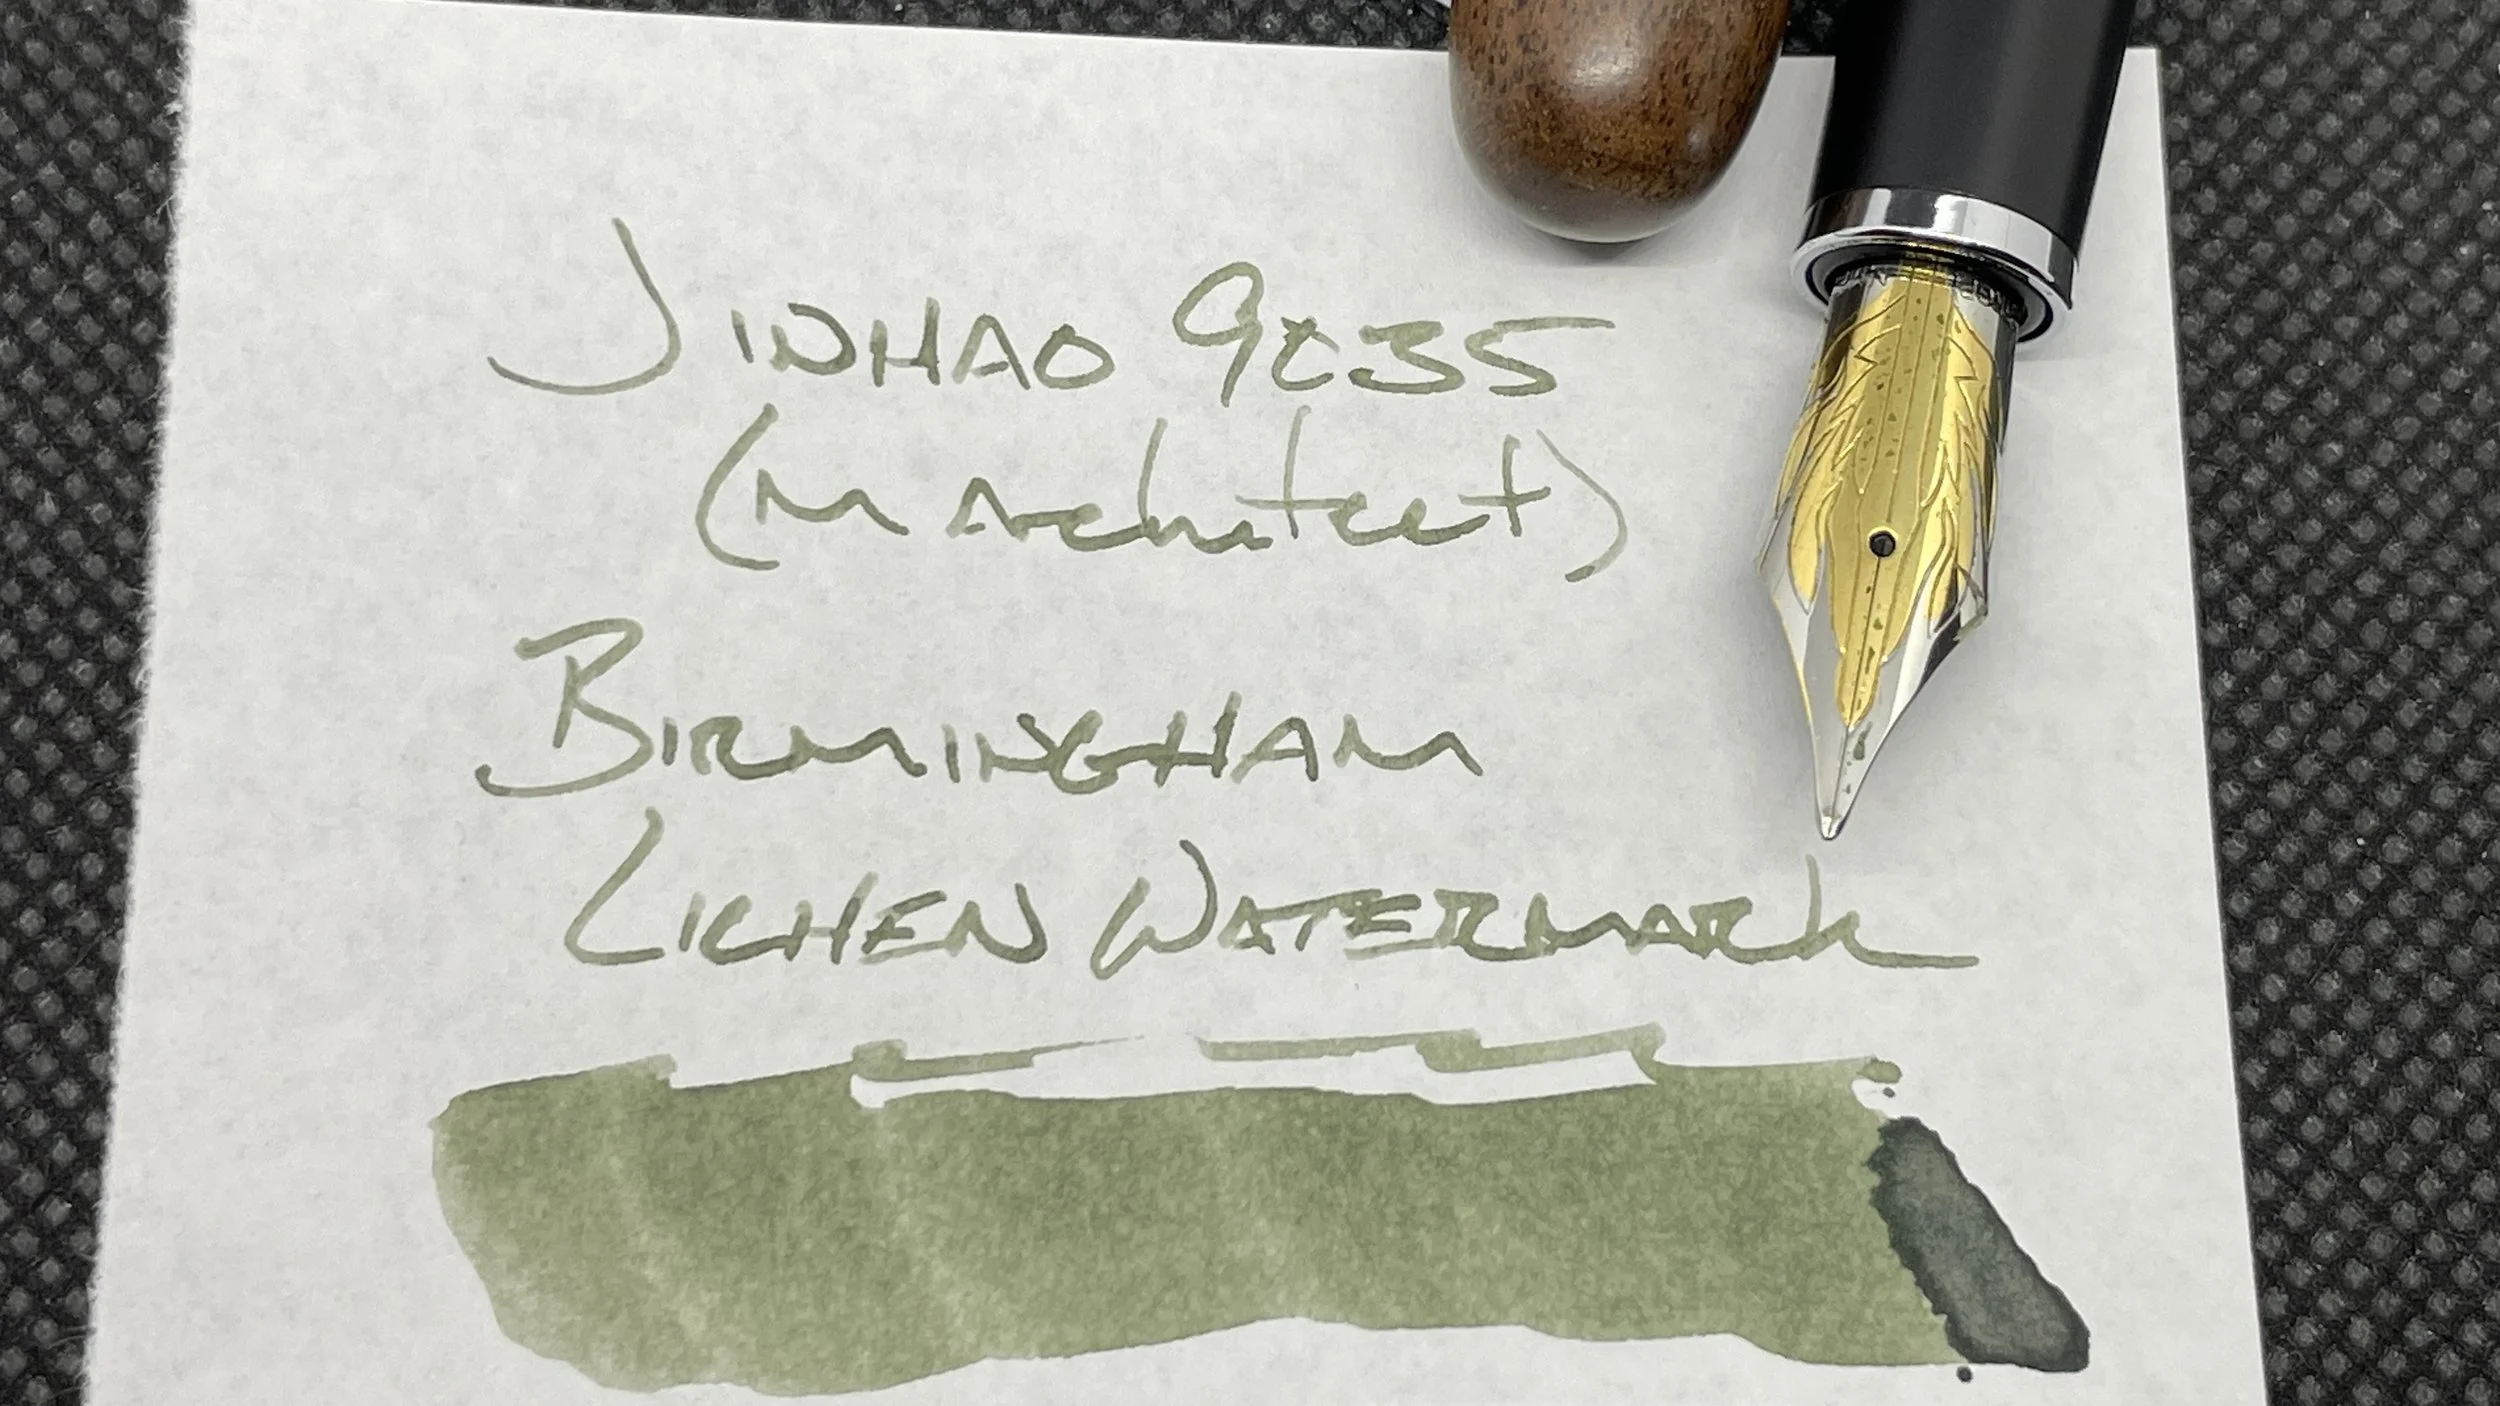 JINHAO 9035
(M Architect)
BIRMINGHAM
LICHEN WATERMARK